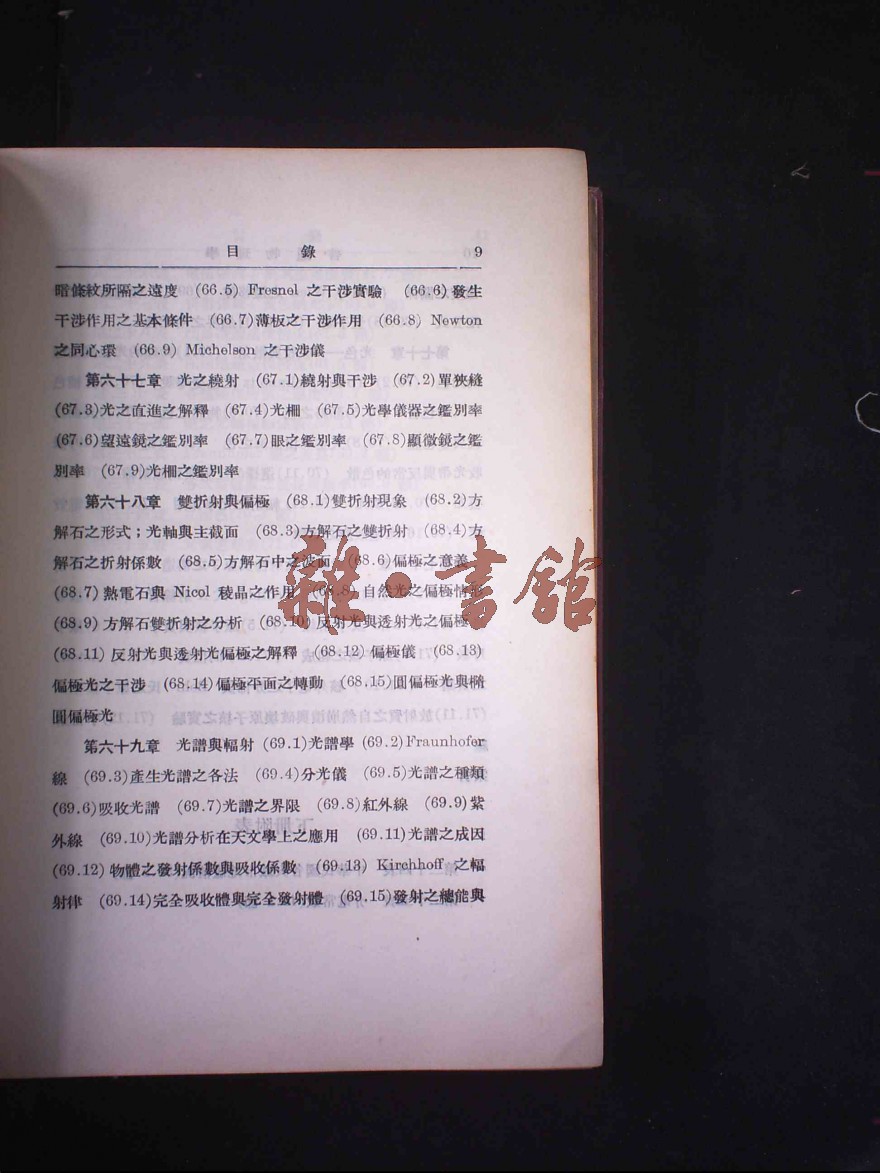 目 錄 9
暗條紋所隔之遠度 (66.5) Fresnel 之干涉實驗 (66.6) 發生
干涉作用之基本條件 (66.7)薄板之干涉作用 (66.8) Newton
之同心環 (66.9) Michelson 之干涉儀
第六十七章 光之繞射 (67.1)繞射與干涉 (67.2)單狹縫
(67.3)光之直進之解釋 (67.4)光柵 (67.5)光學儀器之鑑別率
(67.6)望遠鏡之鑑別率 (67.7)眼之鑑別率 (67.8)顯微鏡之鑑
別率 (67.9)光柵之鑑別率
第六十八章 雙折射與偏極 (68.1)雙折射現象 (68.2)方
解石之形式;光軸與主截面 (68.3)方解石之雙折射 (68.4)方
解石之折射係數 (68.5)方解石中之波面 (68.6)偏極之意義
(68.7) 熱電石與 Nicol 稜晶之作用 (68.8) 自然光之偏極情形
(68.9) 方解石雙折射之分析 (68.10) 反射光與透射光之偏極
(68.11) 反射光與透射光偏極之解釋 (68.12) 偏極儀 (68.13)
偏極光之干涉 (68.14)偏極平面之轉動 (68.15)圓偏極光與橢
圓偏極光
第六十九章 光譜與輻射 (69.1)光譜學 (69.2)Fraunhofer
線 (69.3)產生光譜之各法 (69.4)分光儀 (69.5)光譜之種類
(69.6)吸收光譜 (69.7)光譜之界限 (69.8)紅外線 (69.9)紫
外線 (69.10)光譜分析在天文學上之應用 (69.11)光譜之成因
(69.12) 物體之發射係數與吸收係數 (69.13) Kirchhoff 之輻
射律 (69.14)完全吸收體與完全發射體 (69.15)發射之總能與
雜·書館